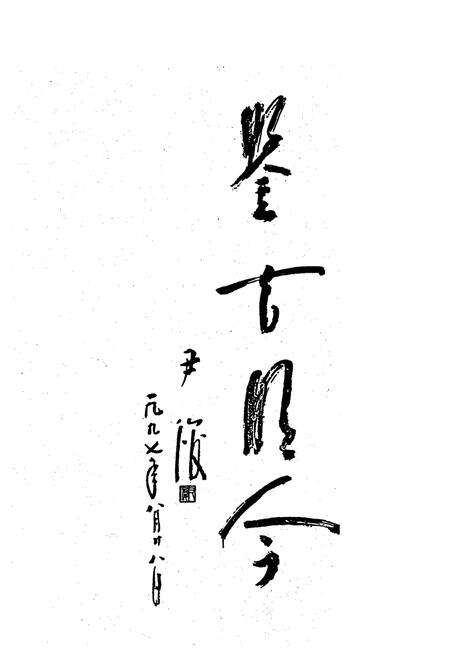 鉴古明今
尹俊
一九九七年八月廿八日